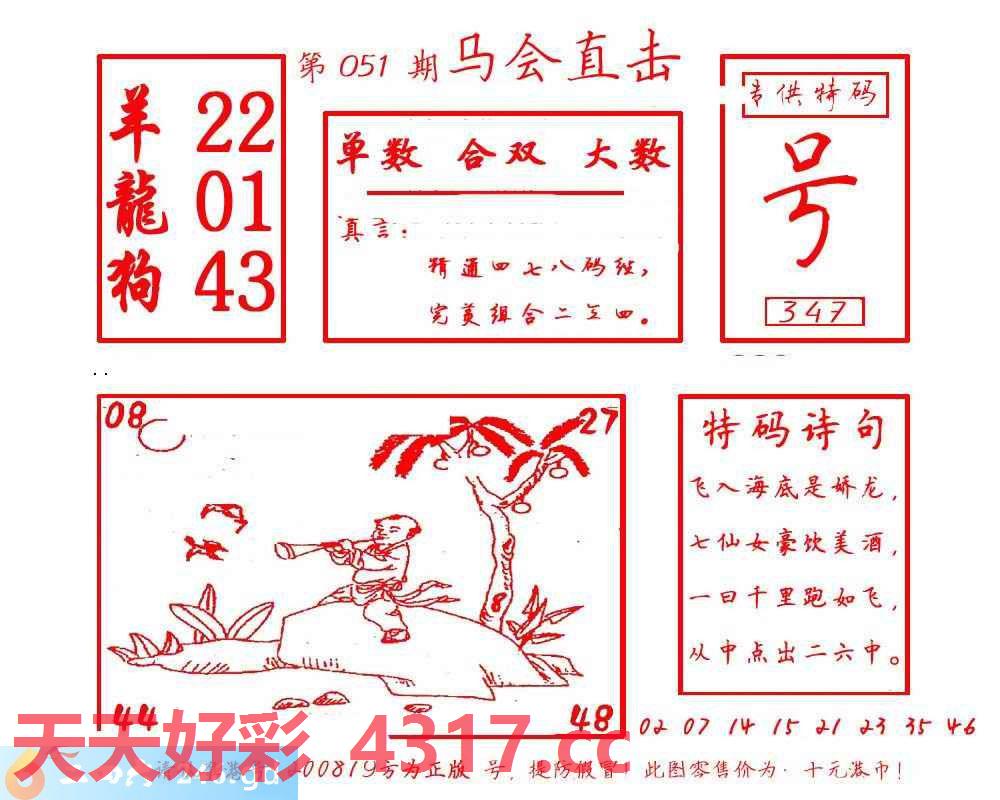 第 051 期 马会直击
羊 22
龍 01
狗 43
单数 合双 大数
真言：
精通四七八码红，
完美组合二五四。
专供特码
号
347
08
27
8
44
48
特码诗句
飞入海底是娇龙，
七仙女豪饮美酒，
一日千里跑如飞，
从中点出二六中。
02 07 14 15 21 23 35 46
天天好彩 4317.cc
400819方为正版 号，提防假冒 此图零售价为：十元港币！